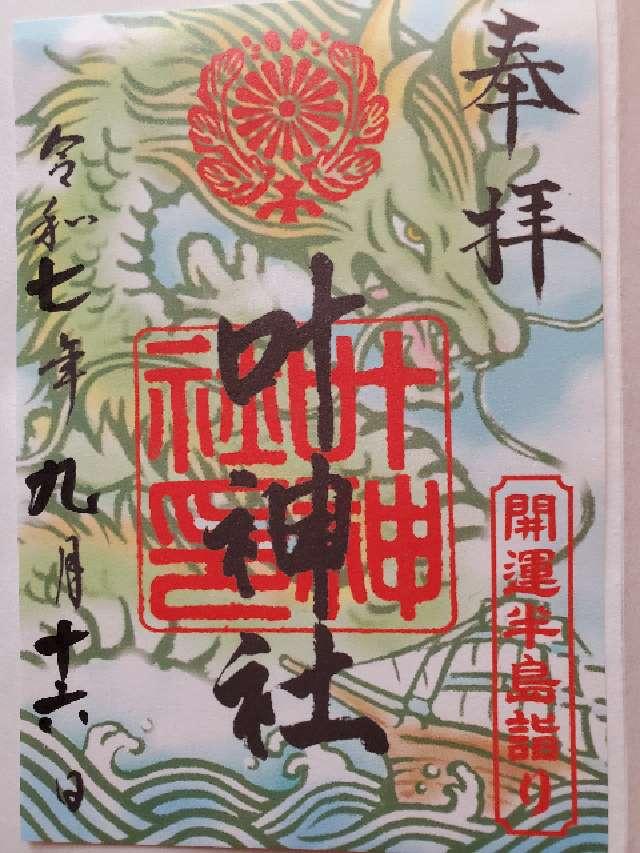 奉拝
開運半島詣り
叶神社
叶神
社印
令和七年九月十六日